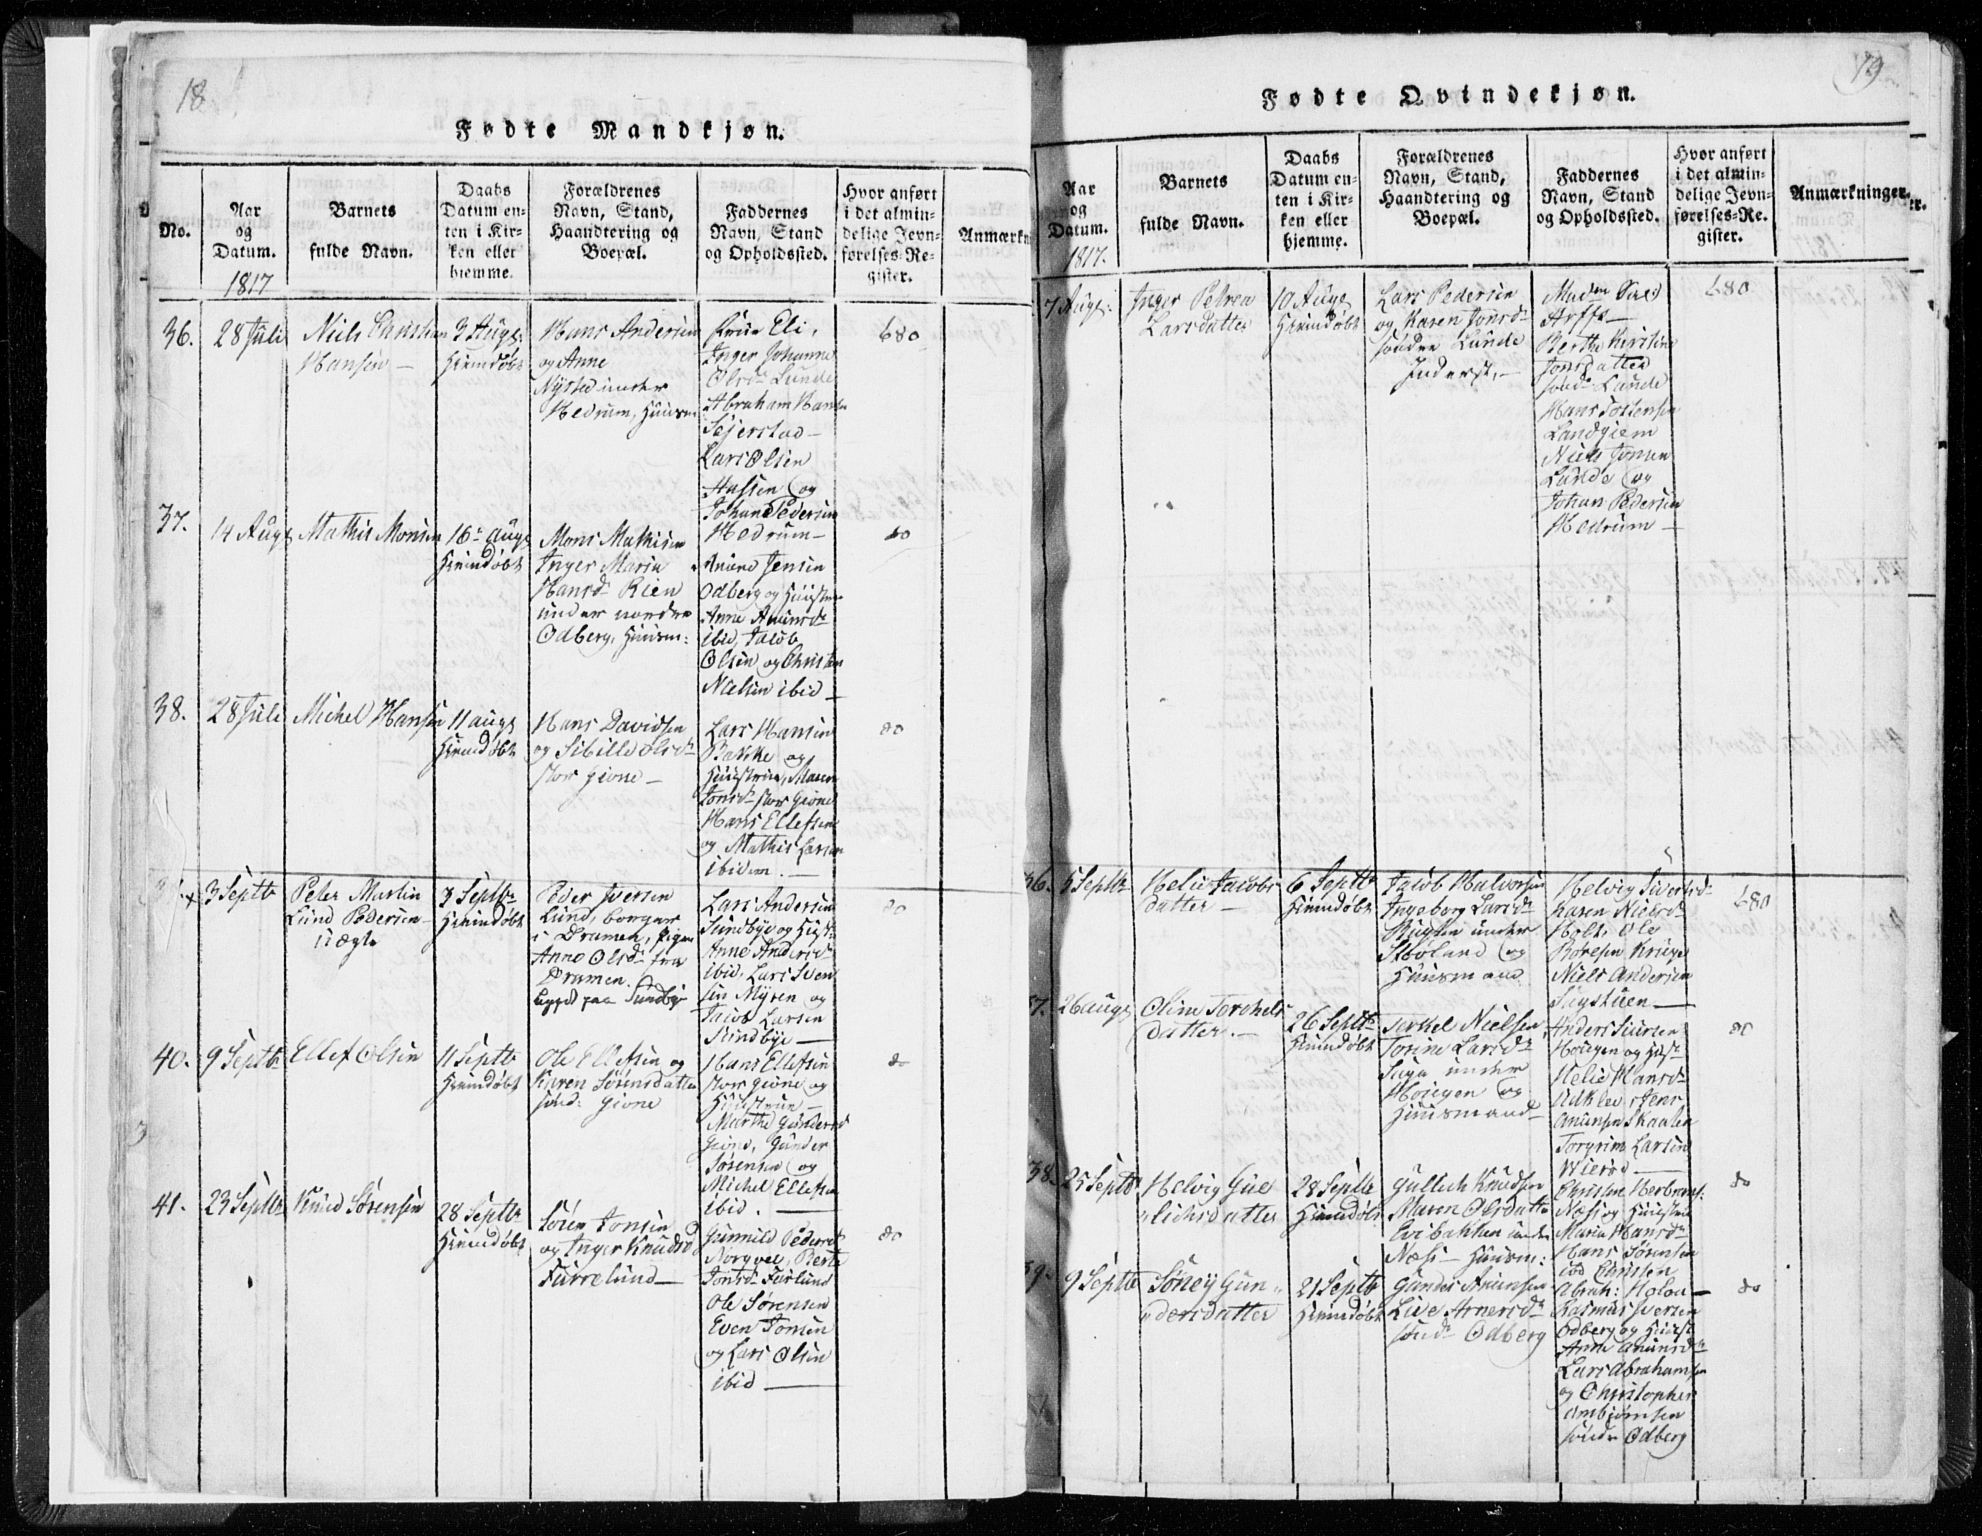 18
Fødte Mandkjøn.
No.
Aar
og
Datum.
1817
Barnets
fulde Navn.
Daabs
Datum en-
ten i Kir-
ken eller
hjemme.
Forældrenes
Navn, Stand,
Haandtering og
Boepæl.
Faddernes
Navn, Stand
og Opholdssted.
Hvor anført
i det almin-
delige Jevn-
førelses-Re-
gister.
Anmærkn
36.
28 Juli
Niels Christian
Hansen
3 Aug:
Hiemdøbt
Hans Andersen
og Anne
Nÿsted under
Hedrum, Huusm
Frue Eli,
Inger Johanne
Olsd. Lunde
Abraham Hansen
Sejerstad
Lars Olsen
og
Johan Pedersen
Hedrum
680
37.
14 Aug
Mathis Monsen
16 aug
Hiemdøbt
Mons Mathisen
Inger Maria
Hansd. Rien
under nordre
Odberg, Huusm:
Jensen
Odberg og Huustru
Anne
ibid, Jacob
Olsen og Christen
Nielsen ibid
do
38.
28 Juli
Michel Hansen
11 aug
Hiemdøbt
Hans Davidsen
og Sibille Olsd
stor Gione
Lars Hansen
Bakke og
Huustrue, Maren
Jonsd. stor Gione
Hans Ellefsen
og Mathis Larsen
ibidem.
do
3 Septb
Peter Martin
Lund Pedersen
uægte
8 Septbr
Hiemdøbt
Peder Iversen
Lund, borger
i Dramen, Pigen
Anne Olsd. fra
Dramen.
paa Sundbÿe
Lars Andersen
Sundbÿe og Hust:
Anne Andersd
ibid, Lars Sven
sen Mÿren og
Jacob Larsen
Sundbÿe
do
40.
9 Septb
Ellef Olsen
11 Septb
Hiemdøbt
Ole Ellefsen og
Karen Sørensdatter
sønd: Gione
Hans Ellefsen
stor Gione og
Huustrue
Marthe Gundersd
Gione, Gunder
Sørensen og
Michel Ellefsen
ibid.
do
41.
23 Septb
Knud Sørensen
28 Septb
Hiemdøbt
Sören Jonsen
og Inger Knudsd
Furrelund
Gunnild Pedersd
Berte
Jonsd. Furlund
Ole Sørensen
Even Jonsen
og Lars Olsen
ibid
do
19
Fødte Qvindekjøn.
Aar
og
Datum.
1817.
Barnets
fulde Navn.
Daabs
Datum en-
ten i Kir-
ken eller
hjemme.
Forældrenes
Navn, Stand,
Haandtering og
Boepæl.
Faddernes
Navn, Stand
og Opholdssted.
Hvor anført
i det almin-
delige Jevn-
førelses-Re-
gister.
Anmærkninger.
7 Aug:
Inger Petrea
Larsdatter
10 Aug
Hiemdøbt
Lars Pedersen
og Karen Jonsd
søndre Lunde
Inderst,
Madm
Berthe Kirstine
Jonsdatter
sønd. Lunde
Hans Torstensen
Landgiem
Niels Jonsen
Lunde og
Johan Pedersen
Hedrum
680
36.
5 Septb
Helie Jacobs
datter
6 Septb
Hiemdøbt
Jacob Halvorsen
Ingeborg Larsd
under
og
Huusmand
Helvig Sivertsd
Karen Nielsd
Holt, Ole
Niels Andersen
680
37.
26 aug
Oline Torchels
datter.
26 Septb
Hiemdøbt
Torkel Nielsen,
Torine Larsd
under
Hougen og
Huusmand
Anders
Hougen og Hust
Helie Hansd
Jens
Torgrim Larsen
do
38.
25 Septb
Helvig Gul
lichsdatter
28 Septb
Hiemdøbt
Gullich Knudsen
Maren Olsdatter
under
Næss Huusm:
Christen Herbrans:
Næss og Huustru
Maria Hansd
Hans Sørensen
ibd Christen
Abrah: Holou
do
39.
9 Septb
Söneÿ Gun
dersdatter
21 Septb
Hiemdøbt
Gunder Anunsen
Live Arnersd
sønd. Odberg
Rasmus Iversen
Odberg og Huust
Anne Anunsd
Lars Abrahamsen
og Christopher
Ambiørnsen
søndr Odberg
do